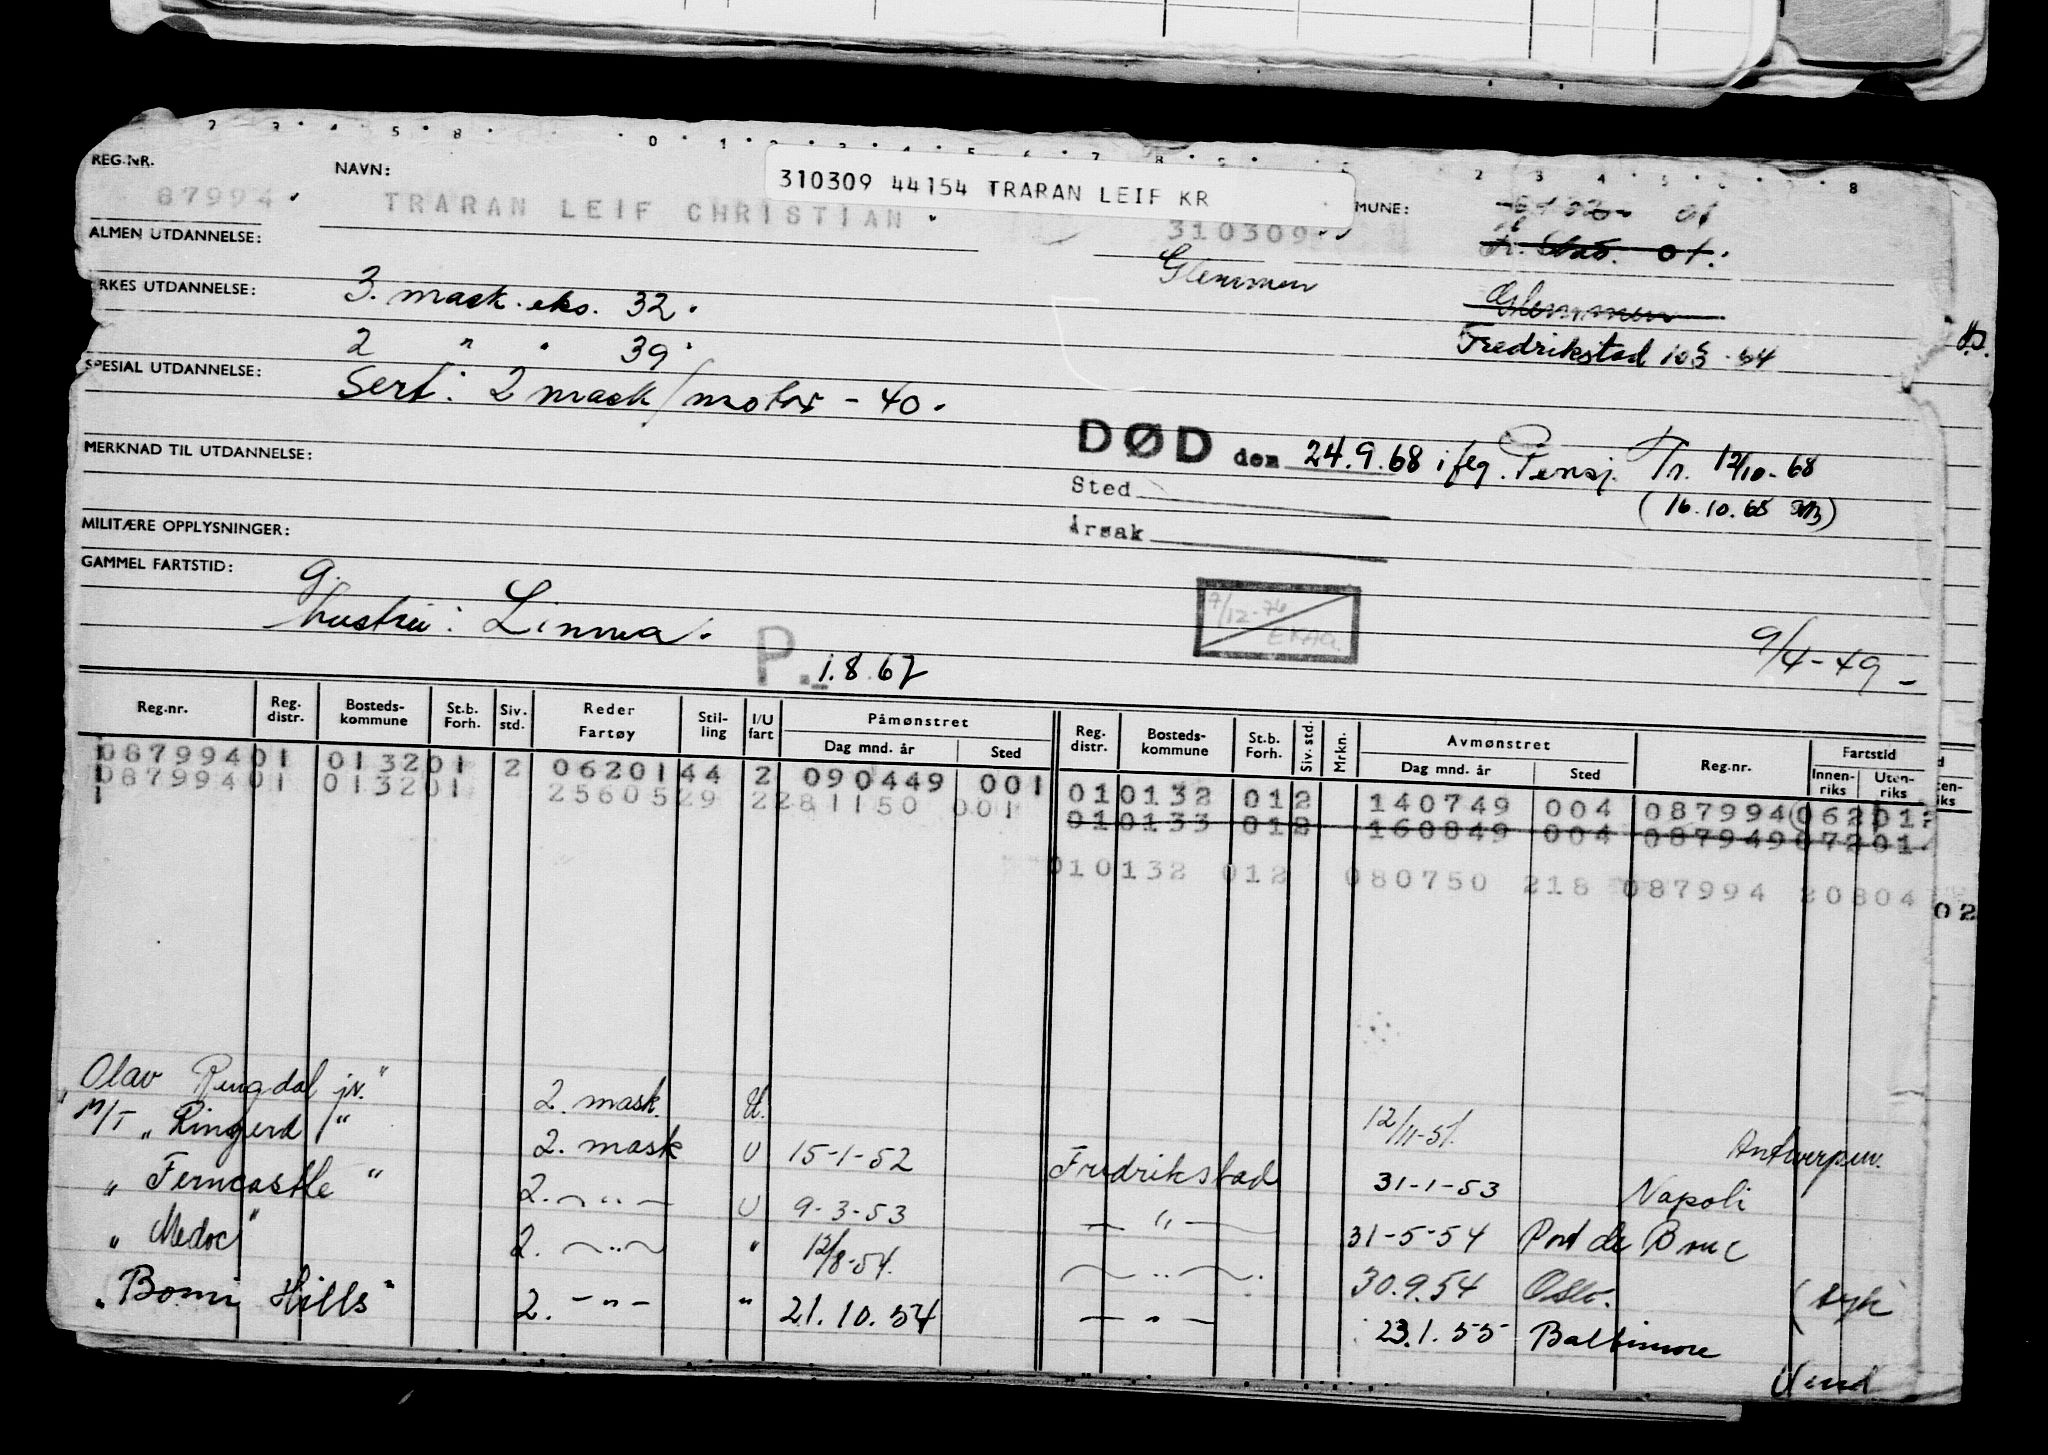 REG.NR. NAVN: 310309 44154 TRARAN LEIF KR MUNE: 01
87994. TRARAN LEIF CHRISTIAN. 310309
ALMEN UTDANNELSE: Glemmen 01.
RKES UTDANNELSE: 3. mask. eks. 32. Glemmen
2 " " 39. Fredrikstad
SPESIAL UTDANNELSE: Sert: 2 mask/motor - 40.
MERKNAD TIL UTDANNELSE: DØD den 24.9.68 iflg. Pensj. Tr. 12/10-68
Sted (16.10.68
MILITÆRE OPPLYSNINGER: Årsak
GAMMEL FARTSTID: g.
hustru: Linnea. 9/4-49-
P. 1.8.67
Reg.nr. Reg. distr. Bosteds-kommune St.b. Forh. Siv. std. Reder Fartøy Stil-ling I/U fart Påmønstret Dag mnd. år Sted Reg. distr. Bosteds-kommune St.b. Forh. Siv. std. Mrkn. Avmønstret Dag mnd. år Sted Reg.nr. Fartstid Innen-riks Uten-riks
087994 01 0132 01 2 0620144 2 090449 001 01 0132 01 2 140749 004 087994 062 012
087994 01 0132 01 2560529 2 281150 001 01 0133 01 2 160849 004 087949 072 01
1
01 0132 01 2 080750 218 087994 20804
02
"Olav Ringdal jr." 2. mask. U. 12/11-51. Antwerpen.
M/T "Ringerd" 2. mask U 15-1-52 Fredrikstad 31-1-53 Napoli
" Ferncastle " 2. - " - U 9-3-53 - " - 31-5-54 Port de Bouc
" Medoc" 2. - " - " 12/8-54. - " - 30.9.54 Oslo. (syk)
"Bomi Hills" 2. - " - " 21.10.54 - " - 23.1.55 Baltimore